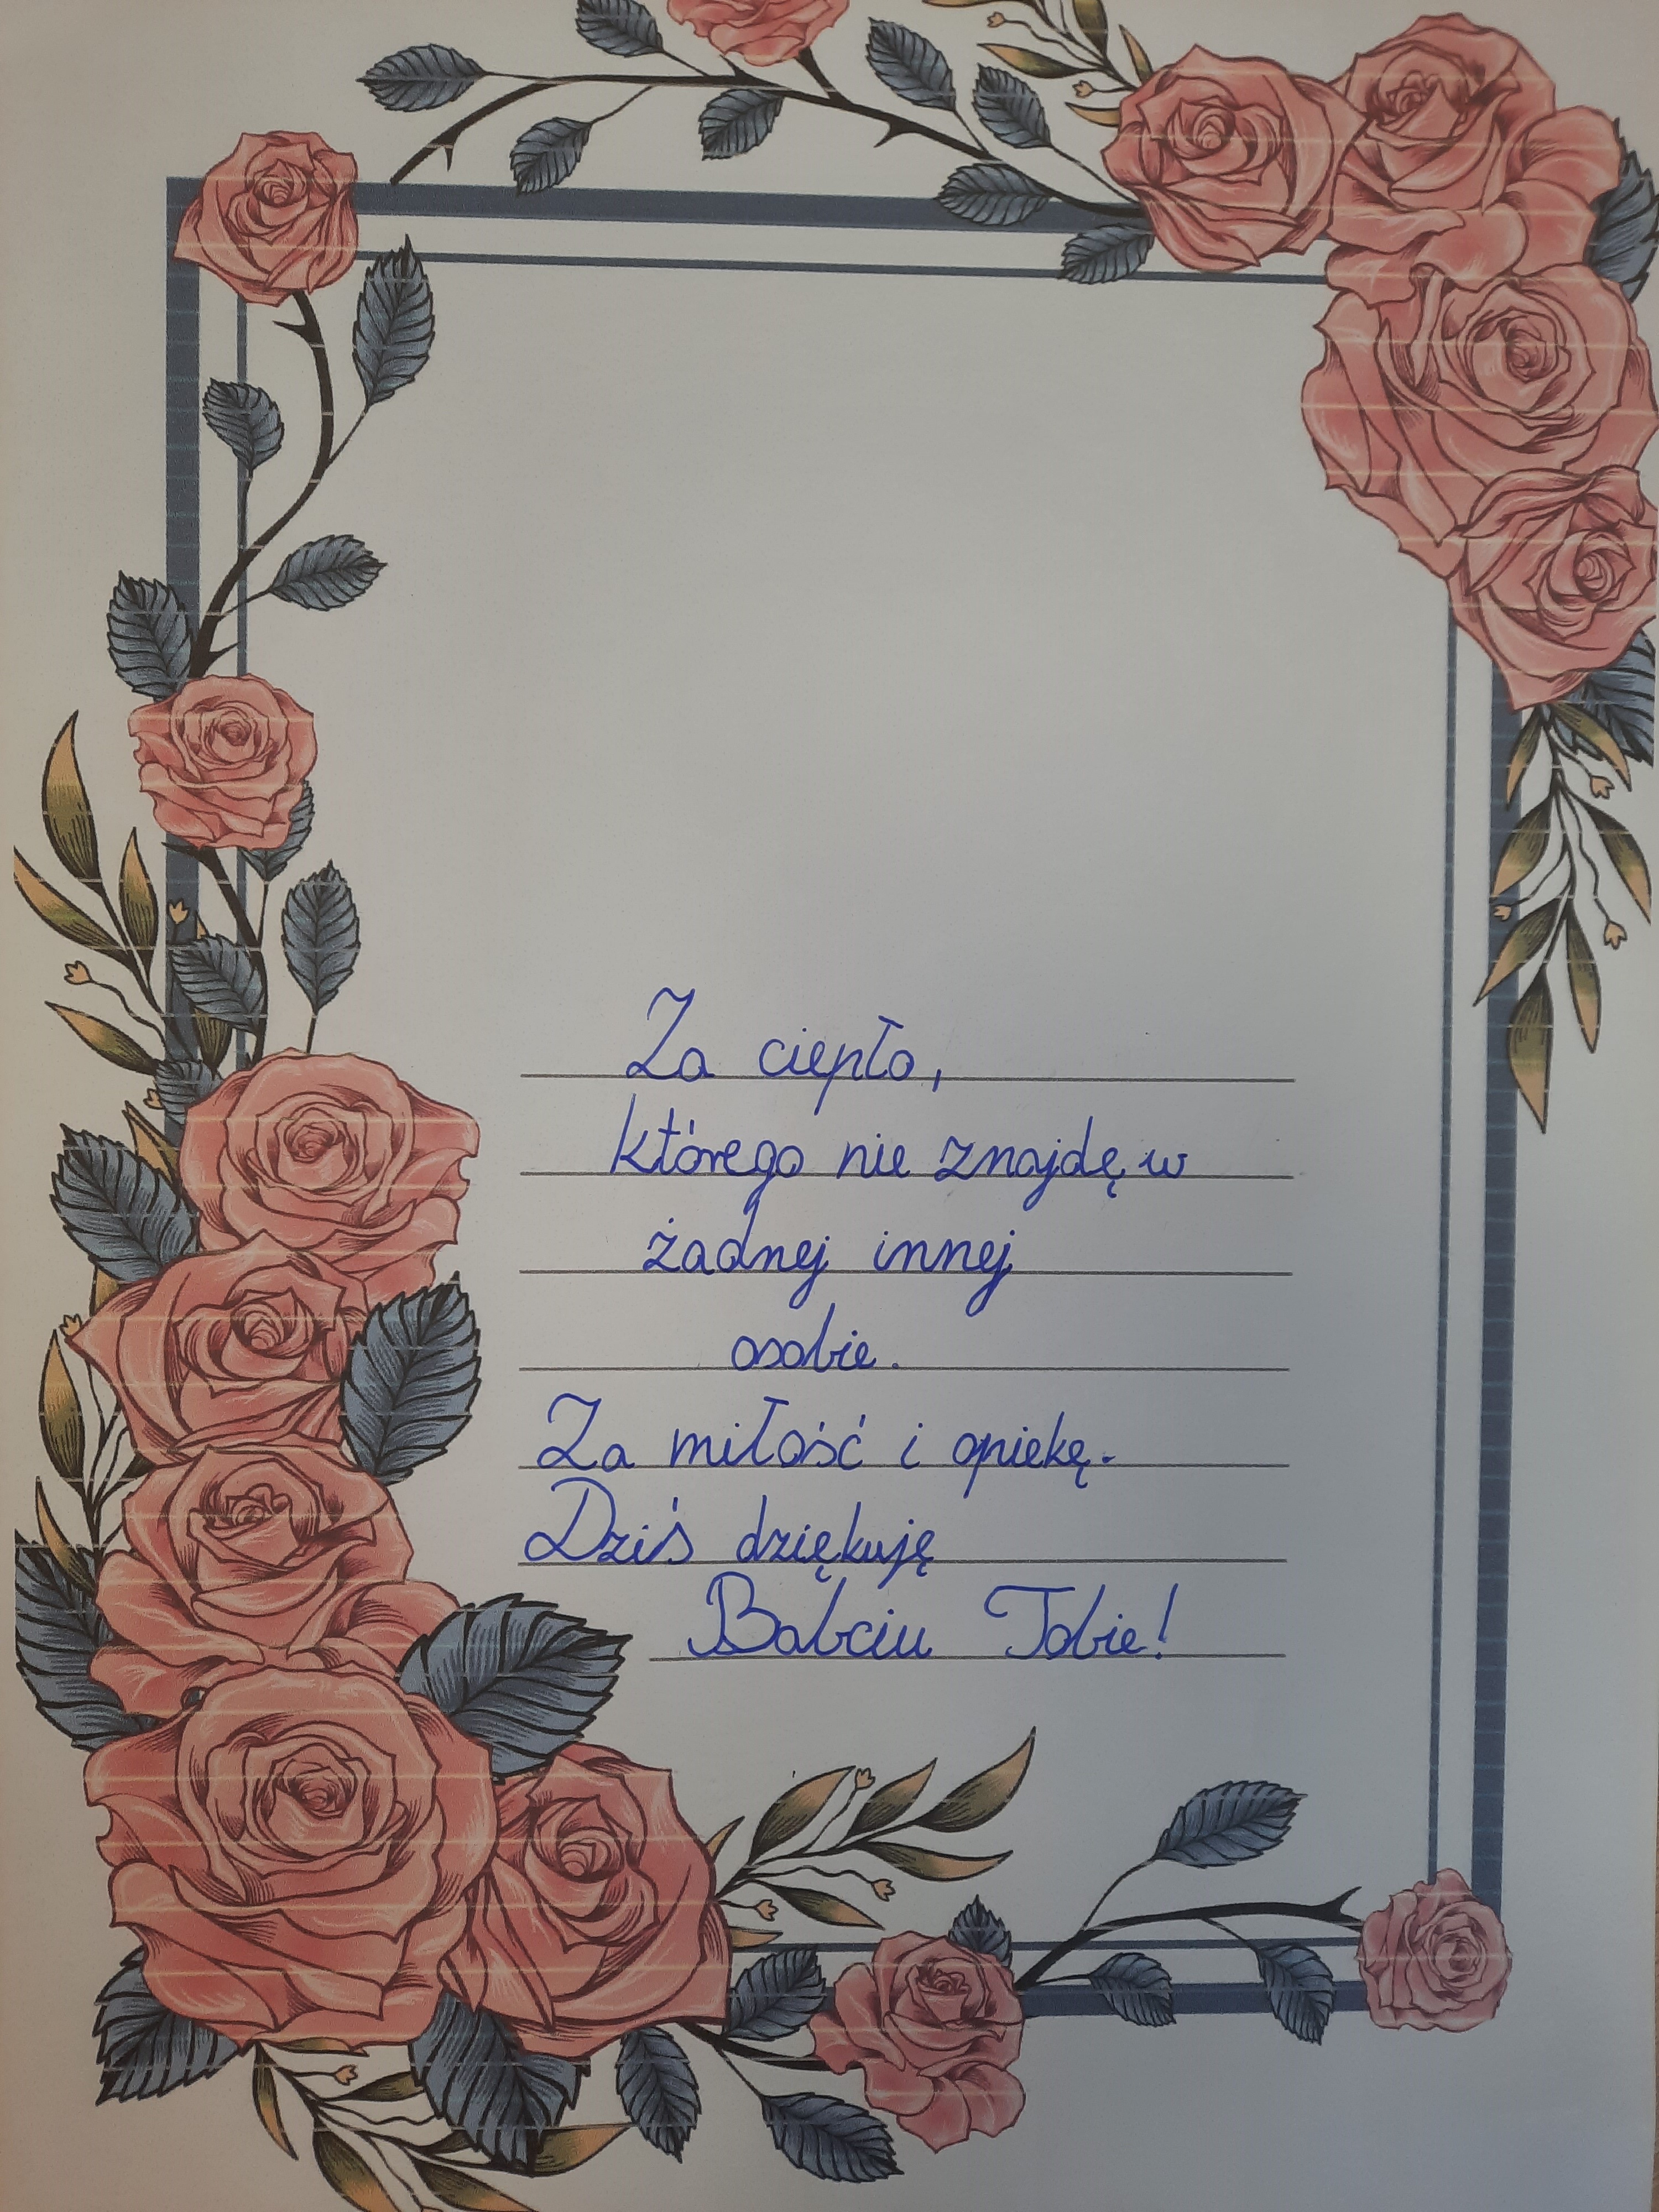 Za ciepło,
którego nie znajdę w
żadnej innej
osobie.
Za miłość i opiekę.
Dziś dziękuję
Babciu Tobie!